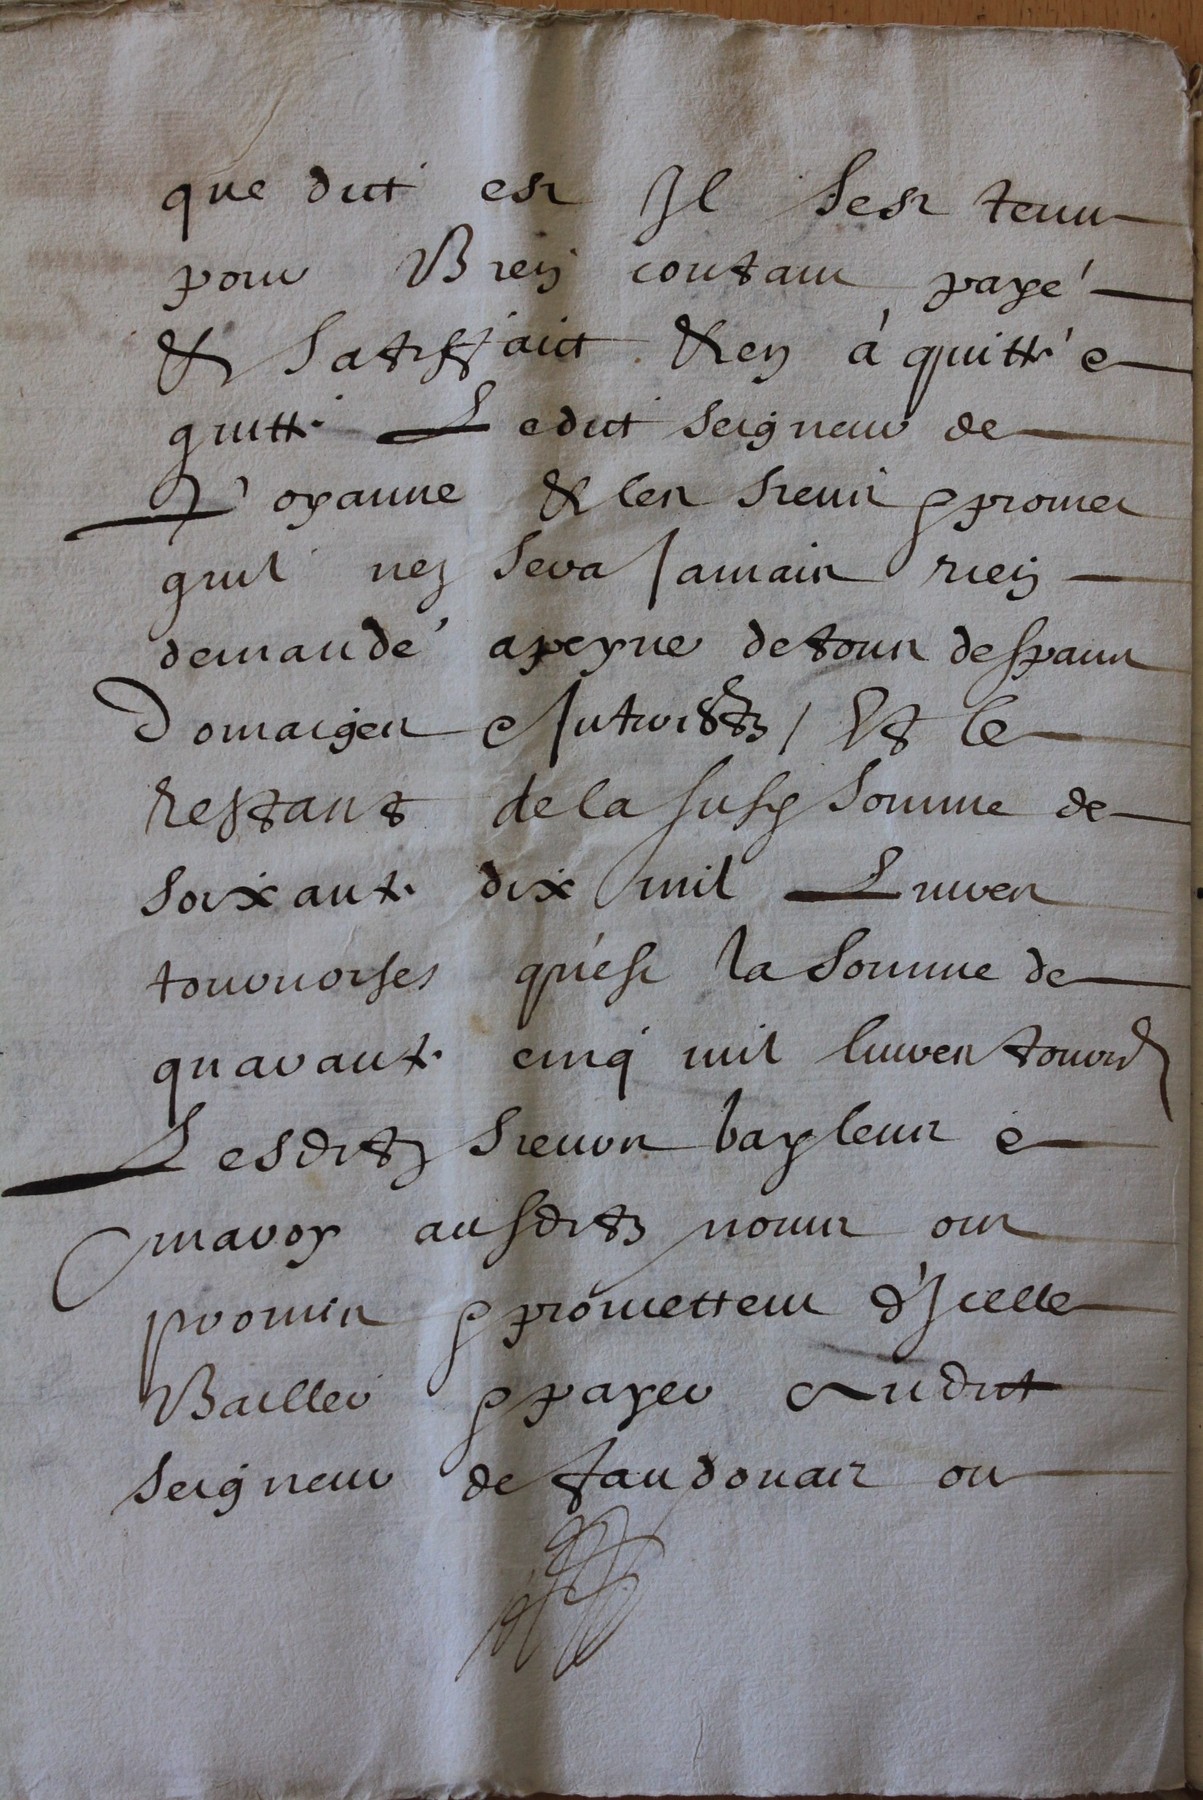 que dict est Il sest tenu
pour Bien contant payé
& satisffaict & en á quitté e
quitte Ledict seigneur de
Poyanne & les siens e promet
quil nen sera Jamais rien
demandé a peyne de tous despans
Domaiges e Intherestz / Et le
Restant de la susd somme de
soixante dix mil Livres
tournoises qu'est la somme de
quarante cinq mil livres tourn
Lesditz sieurs bayleur e
mavoy ausditz noms ont
promis e promettent d'Icelle
Bailler e payer Audict
seigneur de faudouas ou